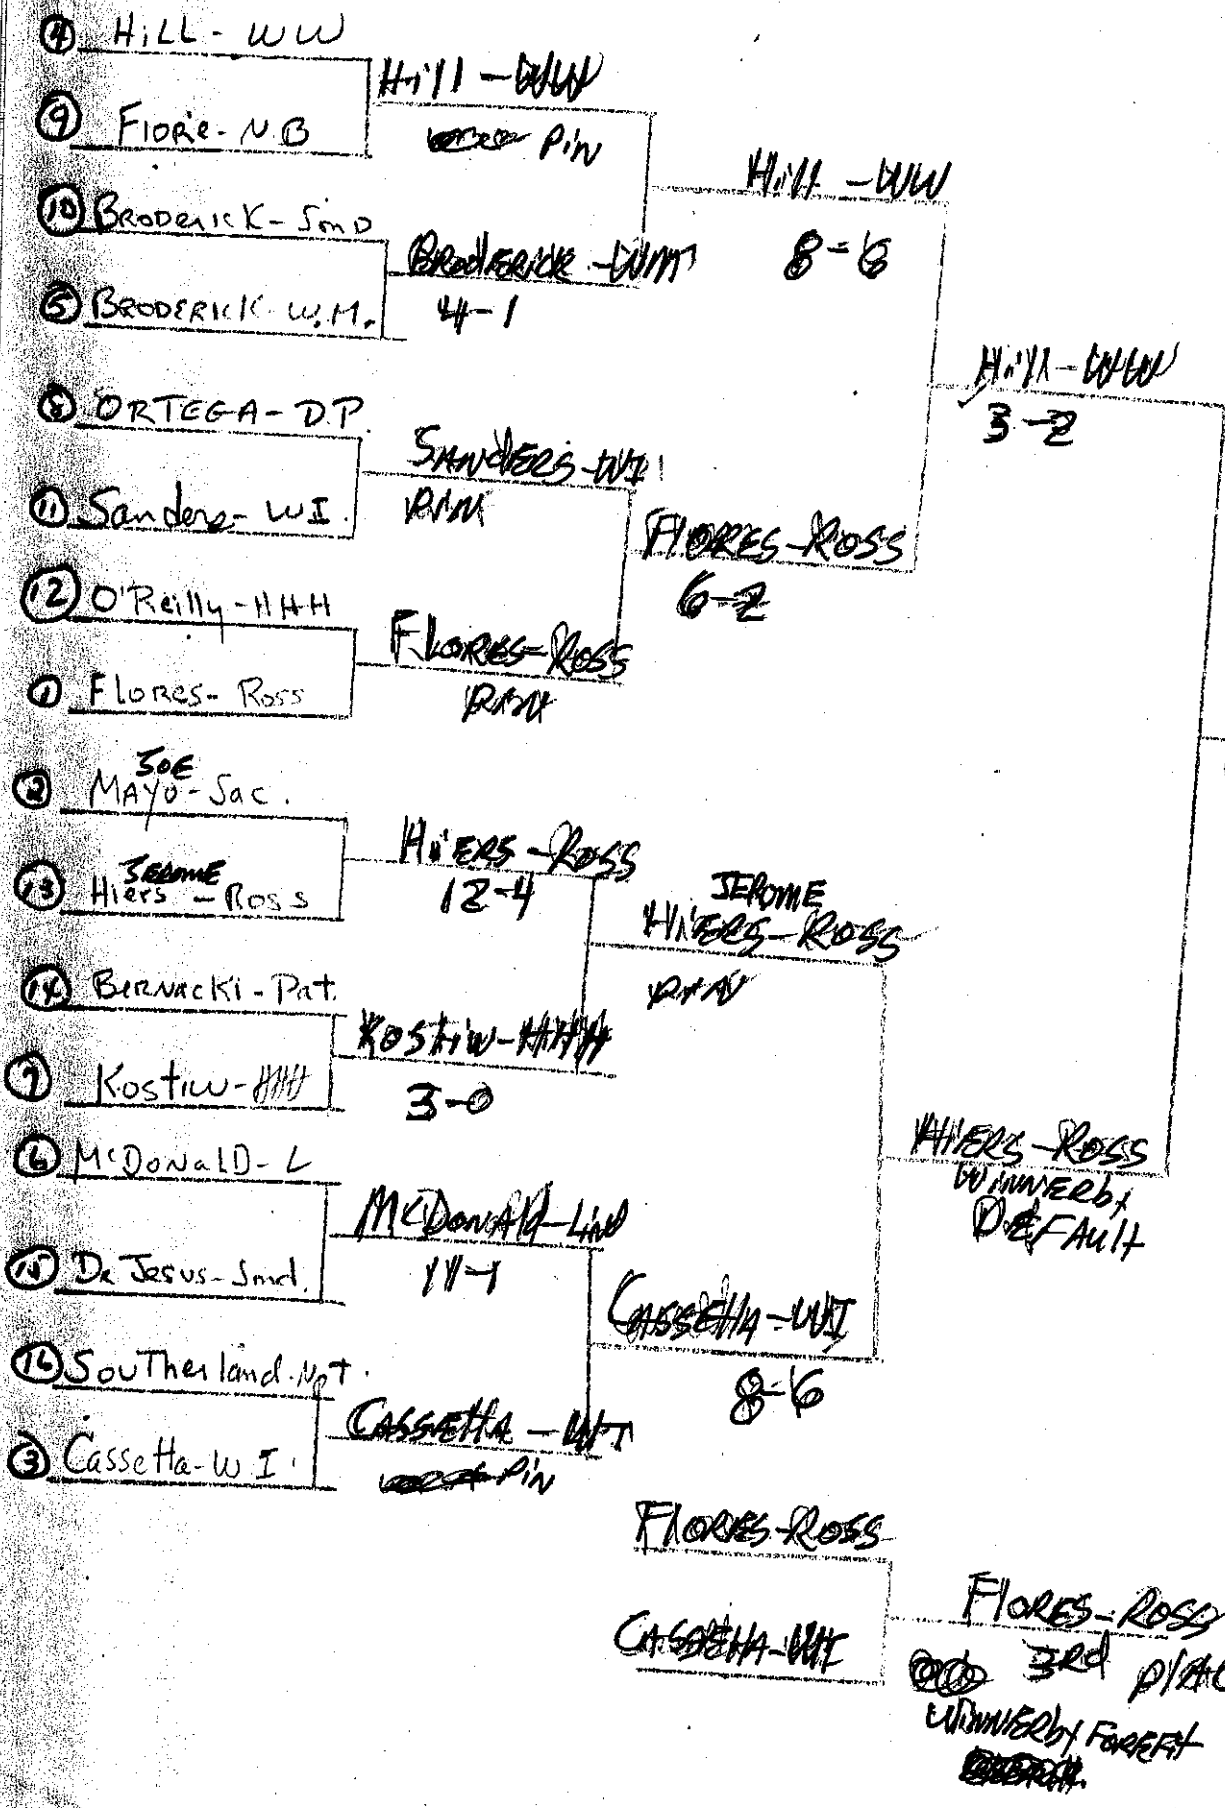 4 HiLL - WW
9 FIORe - N.B
10 BRODerick - Smd
5 BRODERICK - W.M.
8 ORTEGA - D.P.
11 Sanders - WI.
12 O'Reilly - HHH
1 Flores - Ross
JOE
2 MAYO - Sac.
JEROME
13 Hiers - Ross
14 BERNACKi - Pat.
7 Kostiw - HHH
6 McDONALD - L
15 De Jesus - Smd.
16 SouTherland - Npt.
3 Cassetta - WI
Hill - WW
PiN
BRODERICK - WM
4-1
SANDERS - WI
PIN
FLORES - ROSS
PIN
HiERS - ROSS
12-4
KOSTiW - HHH
3-0
McDONALD - LiND
11-1
CASSETTA - WI
PiN
Hill - WW
8-6
FLORES - ROSS
6-2
JEROME
HiERS - ROSS
PIN
CASSETTA - WI
8-6
Hill - WW
3-2
HIERS - ROSS
WiNNER by
DEFAult
FLORES - ROSS
CASSETTA - WI
FLORES - ROSS
3Rd PlAC
WiNNER by FOREFit